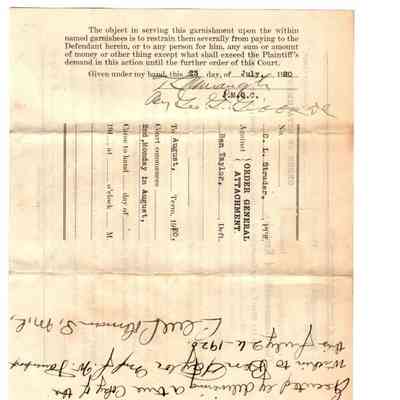 The object in serving this garnishment upon the within
named garnishees is to restrain them severally from paying to the
Defendant herein, or to any person for him, any sum or amount
of money or other thing except what shall exceed the Plaintiff's
demand in this action until the further order of this Court.
Given under my hand, this 23 day, of July, 1920
No.
C. L. Struder, Pl'ff.
Against
ORDER GENERAL
ATTACHMENT.
Ben Taylor, Deft.
To August, Term, 1920,
Court commences
2nd, Monday in August,
Came to hand day of
19 at o'clock M.
Executed by delivering a true Copy of the
Within to Ben Taylor
this July 26 1920